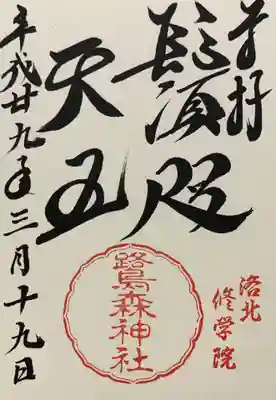 奉拝
洛北
修学院
鬚咫
天王
鷺森神社
平成廿九年三月十九日